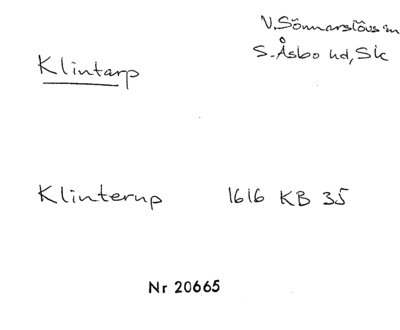 V. Sönnarslövs sn
S. Åsbo hd, Sk
Klintarp
Klinterup 1616 KB 35
Nr 20665